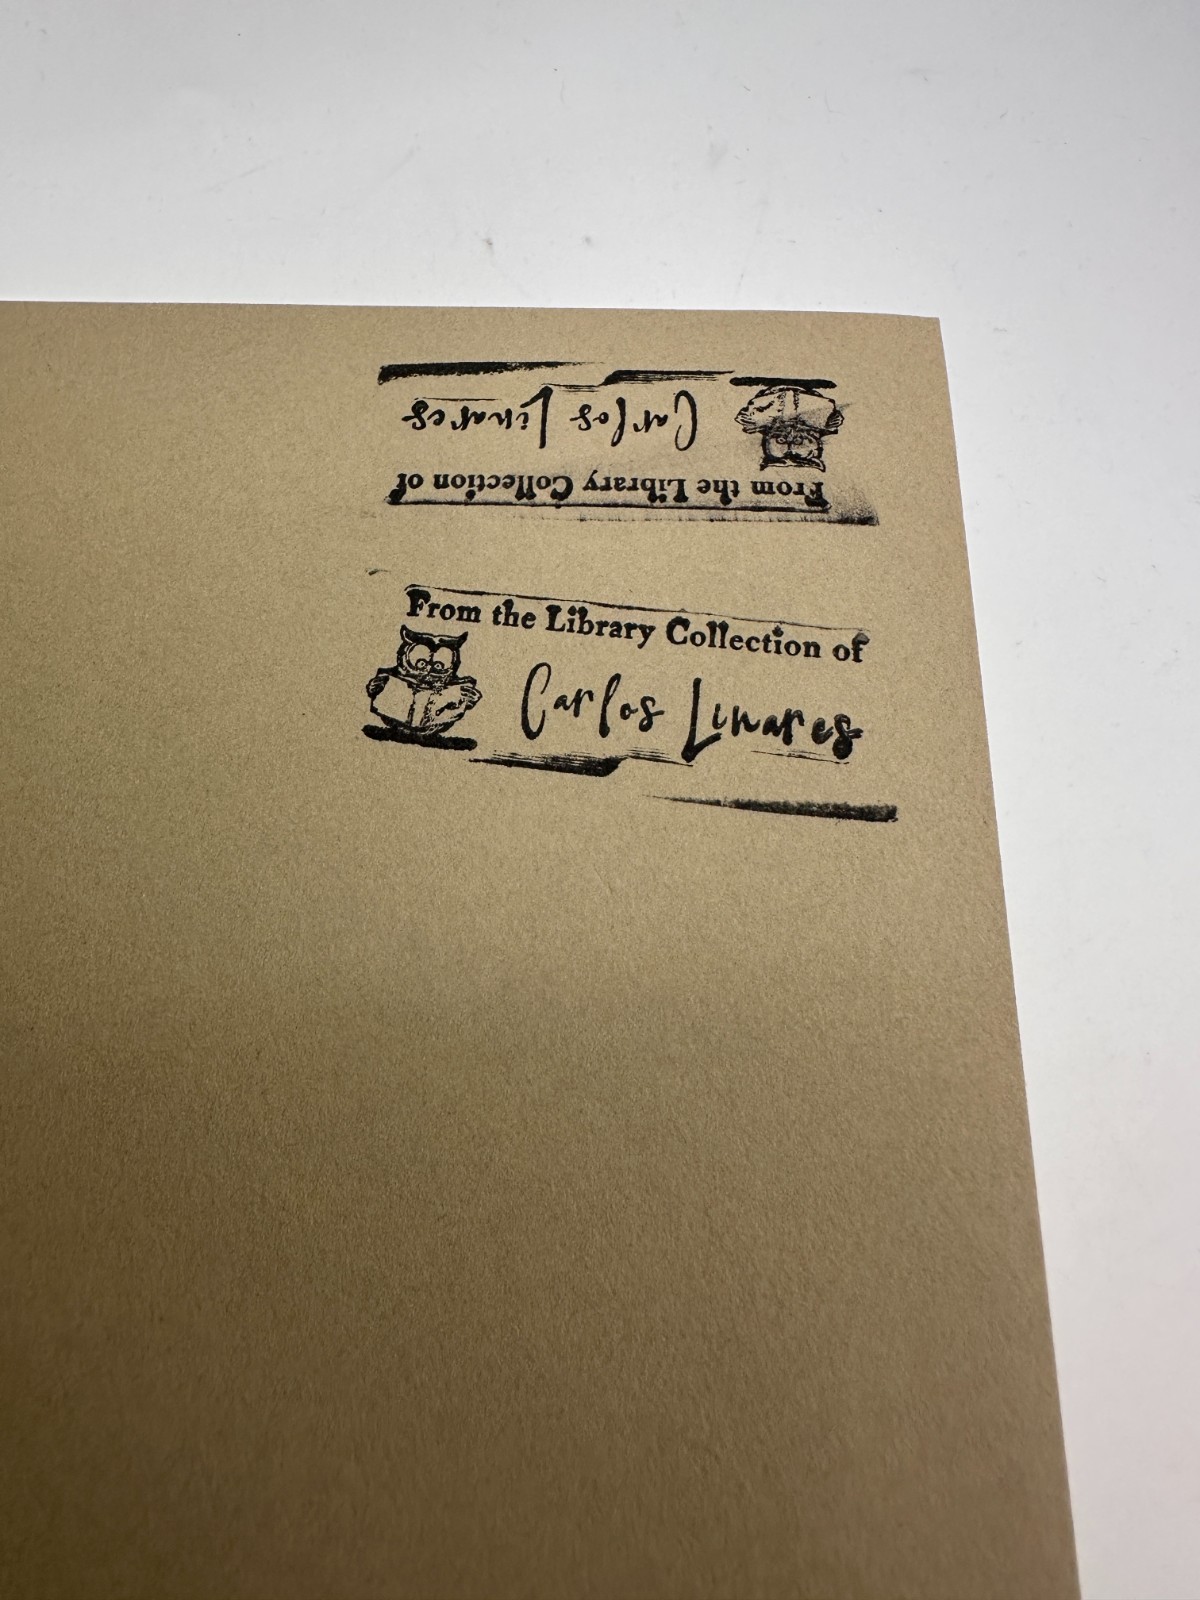 From the Library Collection of
Carlos Linares
From the Library Collection of
Carlos Linares